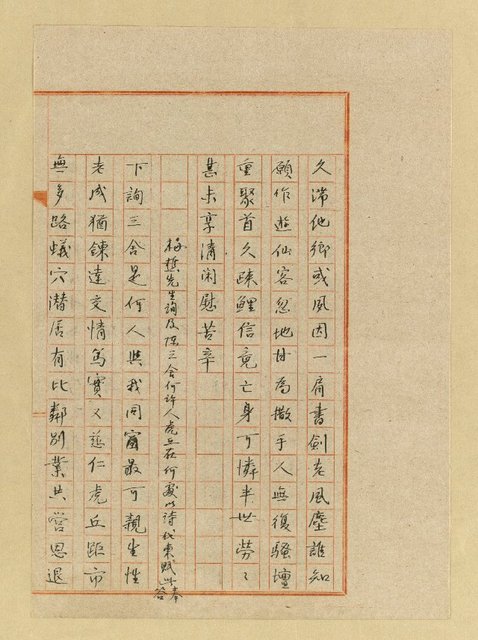 久滯他鄉或夙因一肩書劍老風塵誰知
願作遊仙客忽地甘為撒手人無復騷壇
重聚首久疎鯉信竟亡身可憐半世勞〻
甚未享清閑慰苦辛
梅憨先生詢及陳三合何許人虎丘在何處以詩代柬賦此奉答
下詢三合是何人與我同窗最可親生性
老成猶鍊達交情篤實又慈仁虎丘距市
無多路蟻穴潛居有比鄰別業共營思退